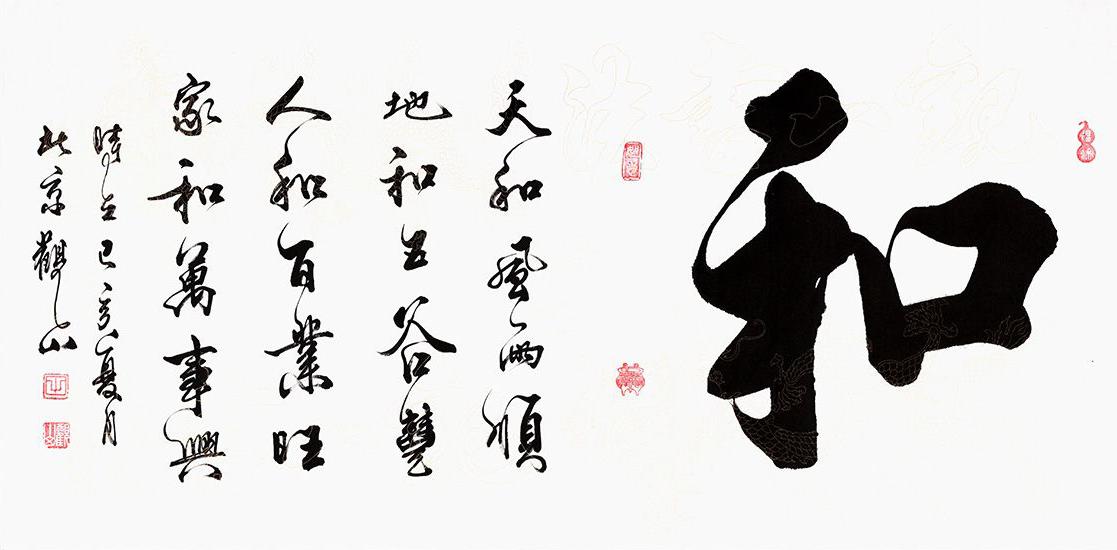 和
天和風雨順
地和五谷豐
人和百業旺
家和萬事興
時在己亥夏月
北京觀山